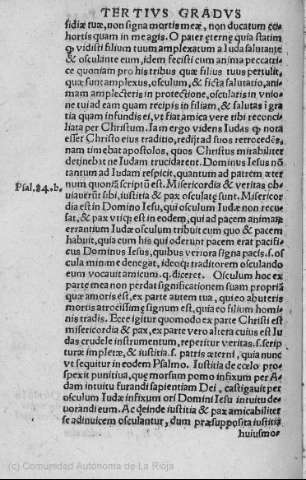 TERTIVS GRADVS
sidiæ tuæ, non signa mortis meæ, non ducatum co-
hortis quam in me agis. O pater eterne quia statim
ꝙ vidisti filium tuum amplexatum a Iuda salutante
& osculante eum, idem fecisti cum anima peccatri-
ce quoniam pro his tribus quæ filius tuus pertulit,
quæ sunt amplexus, osculum, & ficta salutatio, ani-
mam amplecteris in protectione, oscularis in vnio-
ne tui ad eam quam recipis in filiam, & salutas i gra
tia quam infundis ei, vt fiat amica vere tibi reconci-
liata per Christum. Iam ergo videns Iudas ꝙ nota
esset Christo eius traditio, redijt ad suos retrocedēs,
nam timebat apostolos, quos Christus mirabiliter
detinebat ne Iudam trucidarent. Dominus Iesus nō
tantum ad Iudam respicit, quantum ad patrem æter
num quoniā scriptū est. Misericordia & veritas ob-
Psal. 84. b.
uiauerūt sibi, iustitia & pax osculatę sunt. Misericor
dia est in Domino Iesu, qui osculum Iudæ non recu-
sat, & pax vtiqꝫ est in eodem, qui ad pacem animarū
errantium Iudæ osculum tribuit cum quo & pacem
habuit, quia cum his qui oderunt pacem erat pacifi-
cus Dominus Iesus, quibus verbora signa pacis. s. of
cula minime denegat, ideoqꝫ traditorem osculando
eum vocauit amicum. q. diceret. Osculum hoc ex
parte mea non perdat significationem suam propriā
quæ amoris est, ex parte autem tua, qui eo abuteris
mortis atrocissimę signum est, quia eo filium homi-
nis tradis. Ecce igitur quomodo ex parte Christi est
misericordia & pax, ex parte vero altera cuius est Iu
das crudele instrumentum, reperitur veritas. s. scrip
turæ impletæ, & iustitia. s. patris æterni, quia nunc
vt sequitur in eodem Psalmo. Iustitia de cœlo pro-
spexit punitiua, quę morsum pomo infixum per A-
dam intuitu furandi sapientiam Dei, castigauit per
osculum Iudæ infixum ori Domini Iesu intuitu de-
uorandi eum. Ac deinde iustitia & pax amicabiliter
se adinuicem osculantur, dum præsupposita iustitia
huiusmo-
(c) Comunidad Autónoma de La Rioja